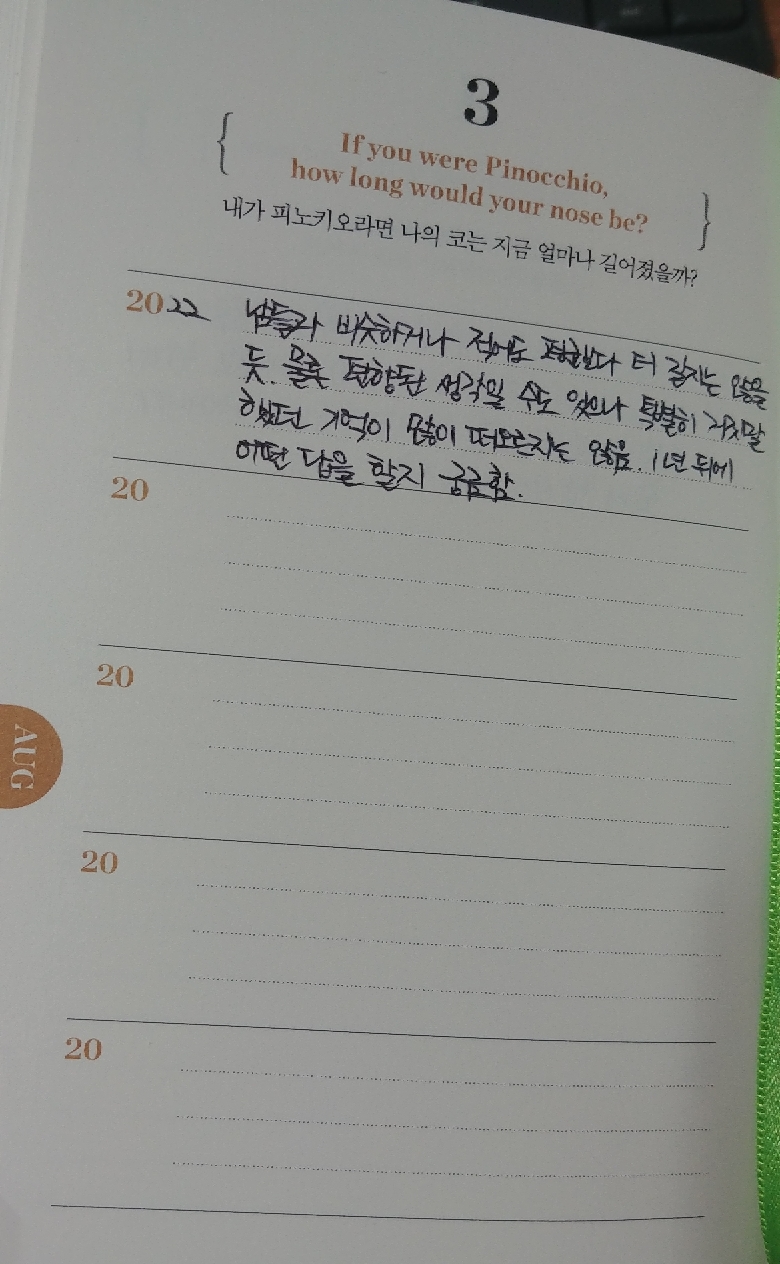 3
If you were Pinocchio,
how long would your nose be?
내가 피노키오라면 나의 코는 지금 얼마나 길어졌을까?
2022 남들과 비슷하거나 적어도 평균보다 더 길지는 않을
듯. 물론 편향된 생각일 수도 있으나 특별히 거짓말
했던 기억이 많이 떠오르지는 않음. 1년 뒤에
어떤 답을 할지 궁금함.
20
20
AUG
20
20